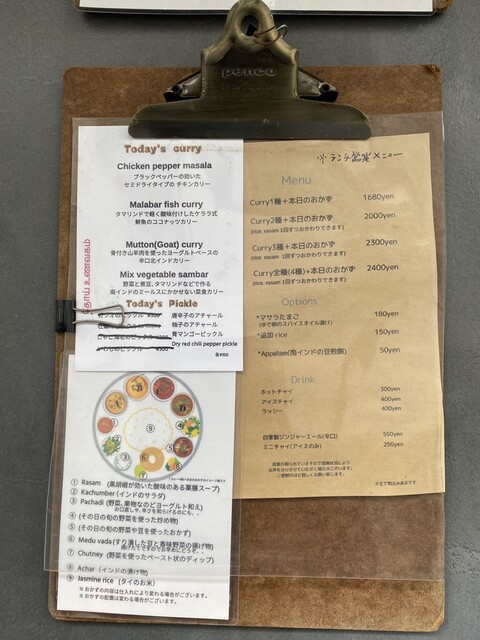 penco
Today's curry
Chicken pepper masala
ブラックペッパーの効いた
セミドライタイプの チキンカリー
Malabar fish curry
タマリンドで軽く酸味付けしたケララ式
鮮魚のココナッツカリー
Mutton(Goat) curry
骨付き山羊肉を使ったヨーグルトベースの
辛口北インドカリー
Mix vegetable sambar
野菜と煮豆、タマリンドなどで作る
南インドのミールスにかかせない菜食カリー
Today's Pickle
唐辛子のアチャール
柚子のアチャール
青マンゴーピックル
Dry red chili pepper pickle
各¥100
① Rasam (黒胡椒が効いた酸味のある薬膳スープ)
② Kachumber (インドのサラダ)
③ Pachadi (野菜、果物などのヨーグルト和え)
お口直しや、辛さを和らげるのにも、、
④ (その日の旬の野菜を使った炒め物)
⑤ (その日の旬の野菜や豆を使ったおかず)
⑥ Medu vada(すり潰した豆と香味野菜の揚げ物)
揚げたてですのでお早めにどうぞ、、
⑦ Chutney (野菜を使ったペースト状のディップ)
⑧ Achar (インドの漬け物)
⑨ Jasmine rice (タイのお米)
※おかずの内容は仕入れにより変わる場合がございます。
※おかずの配置は変わる場合がございます。
※ランチ営業メニュー
Menu
Curry1種+本日のおかず 1680yen
Curry2種+本日のおかず 2000yen
(rice rasam 1回ずつおかわりできます)
Curry3種+本日のおかず 2300yen
(rice rasam 1回ずつおかわりできます)
Curry全種(4種)+本日のおかず 2400yen
Options
*マサラたまご 180yen
(ゆで卵のスパイスオイル漬け)
*追加 rice 150yen
*Appalam(南インドの豆煎餅) 50yen
Drink
ホットチャイ 300yen
アイスチャイ 400yen
ラッシー 400yen
自家製ジンジャーエール(辛口) 550yen
ミニチャイ(アイスのみ) 250yen
※全て税込み表示です